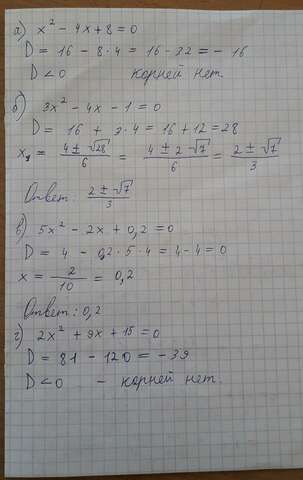 а) x² - 4x + 8 = 0
D = 16 - 8·4 = 16 - 32 = - 16
D < 0 корней нет.
б) 3x² - 4x - 1 = 0
D = 16 + 3·4 = 16 + 12 = 28
x₁ = (4 ± √28)/6 = (4 ± 2√7)/6 = (2 ± √7)/3
Ответ: (2 ± √7)/3
в) 5x² - 2x + 0,2 = 0
D = 4 - 0,2·5·4 = 4 - 4 = 0
x = 2/10 = 0,2
Ответ: 0,2
г) 2x² + 9x + 15 = 0
D = 81 - 120 = - 39
D < 0 - корней нет.